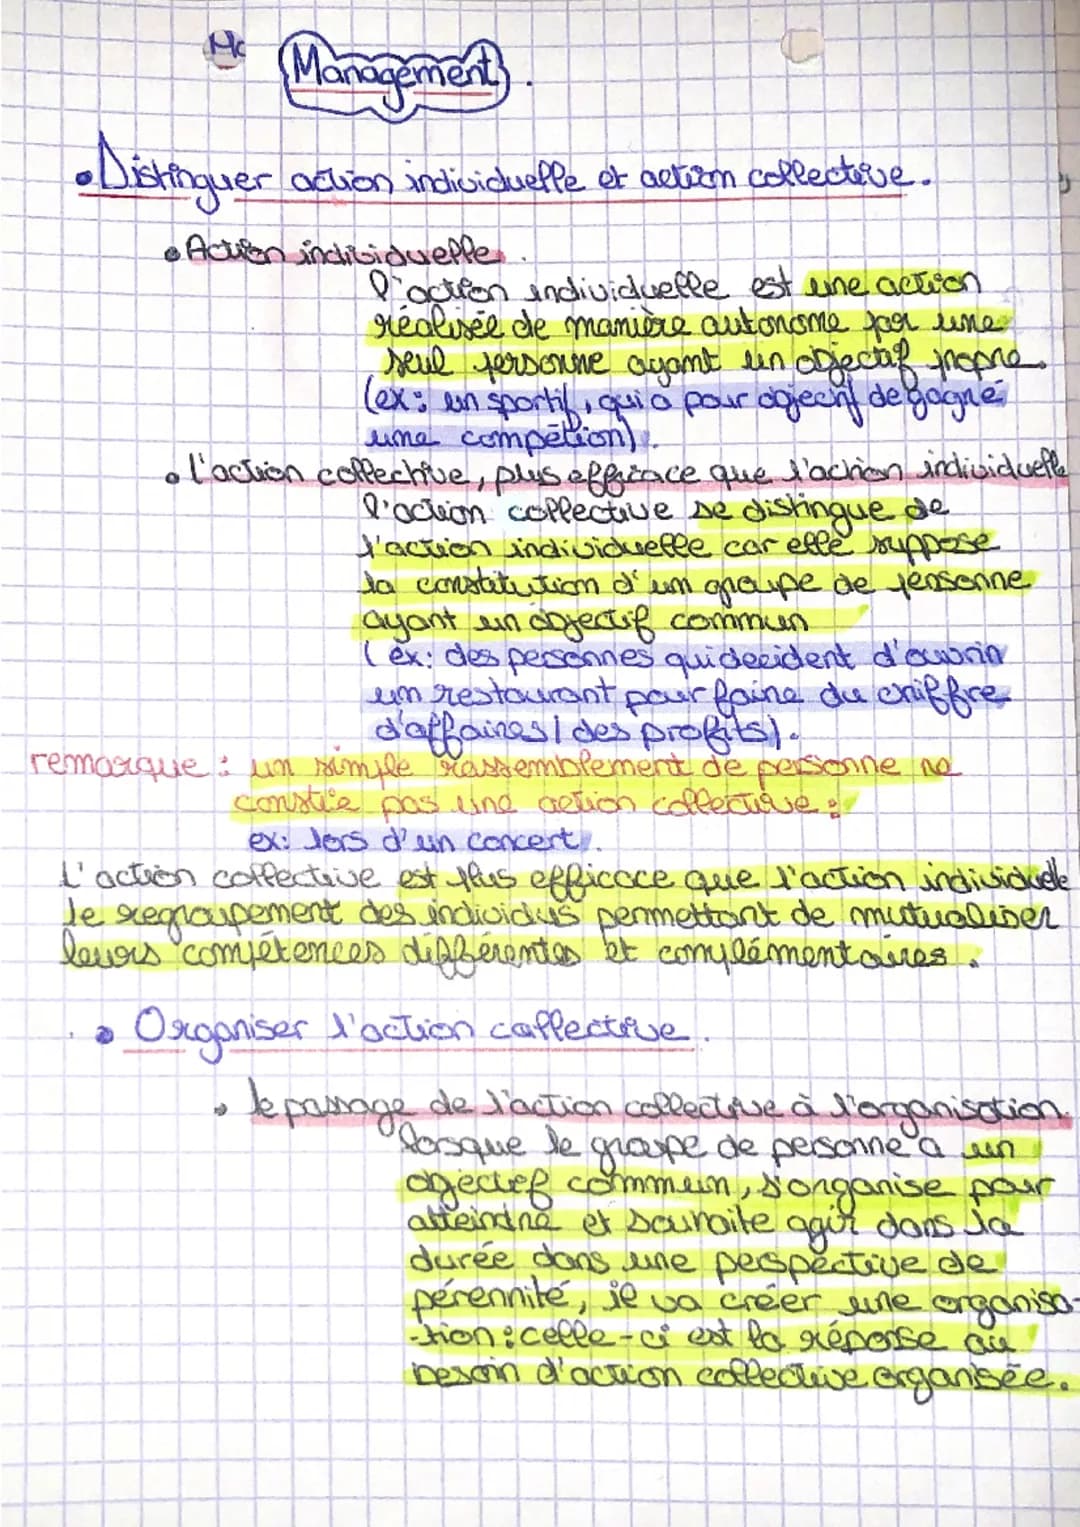 Management.
• Distinguer action individuelle et action collective.
• Action individuelle.
l'action individuelle est une action
réalisée de manière autonome par une
seul personne ayant un objectif propre.
(ex: un sportif, qui a pour objectif de gagné
une compétion).
• l'action collective, plus efficace que l'action individuelle
l'action collective se distingue de
l'action individuelle car elle suppose
la constitution d'un groupe de personne
ayant un objectif commun
(ex: des personnes qui decident d'ouvrir
un restaurant pour faire du chiffre
d'affaires / des profits).
remarque : un simple rassemblement de personne ne
constie pas une action collective :
ex: lors d'un concert.
L'action collective est plus efficace que l'action individuelle
le regroupement des individus permettant de mutualiser
leurs compétences différentes et complémentaires.
• Organiser l'action collective.
• le passage de l'action collective à l'organisation.
lorsque le groupe de personne a un
objectif commun, s'organise pour
atteindre et souhaite agir dans la
durée dans une perspective de
pérennité, il va créer une organisa-
-tion : celle-ci est la réponse au
besoin d'action collective organisée.